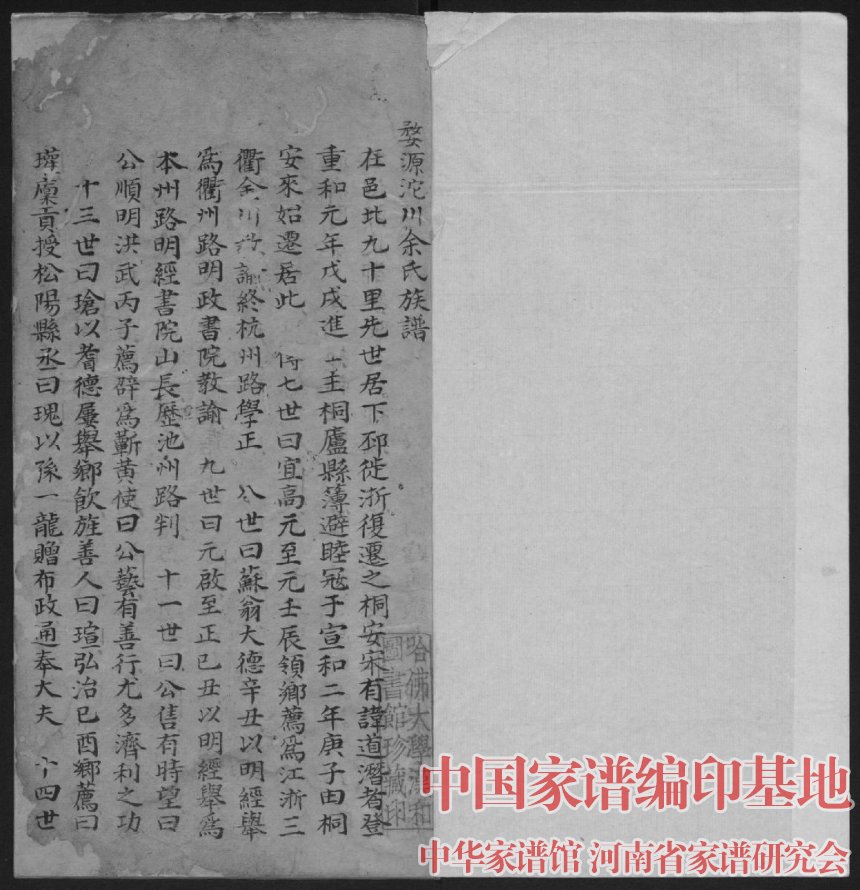 婺源沱川余氏族譜
在邑北九十里先世居下邳徙浙復遷之桐安宋有諱道潛者登
重和元年戊戌進士主桐廬縣簿避睦冦于宣和二年庚子由桐
安來始遷居此 七世曰宜高元至元壬辰領鄉薦爲江浙三
衢 終杭州路學正 八世曰蘇翁大德辛丑以明經舉
爲衢州路明政書院教諭 九世曰元啟至正己丑以明經舉爲
本州路明經書院山長歷池州路判 十一世曰公售有時望曰
公順明洪武丙子薦辟爲蘄黃使曰公藝有善行尤多濟利之功
十三世曰瑲以耆德屢舉鄉飲旌善人曰瑄弘治己酉鄉薦曰
瓘廩貢授松陽縣丞曰瑰以豫一龍贈布政通奉大夫 十四世
哈佛大學漢和
圖書館珍藏印
中国家谱编印基地
中华家谱馆 河南省家谱研究会